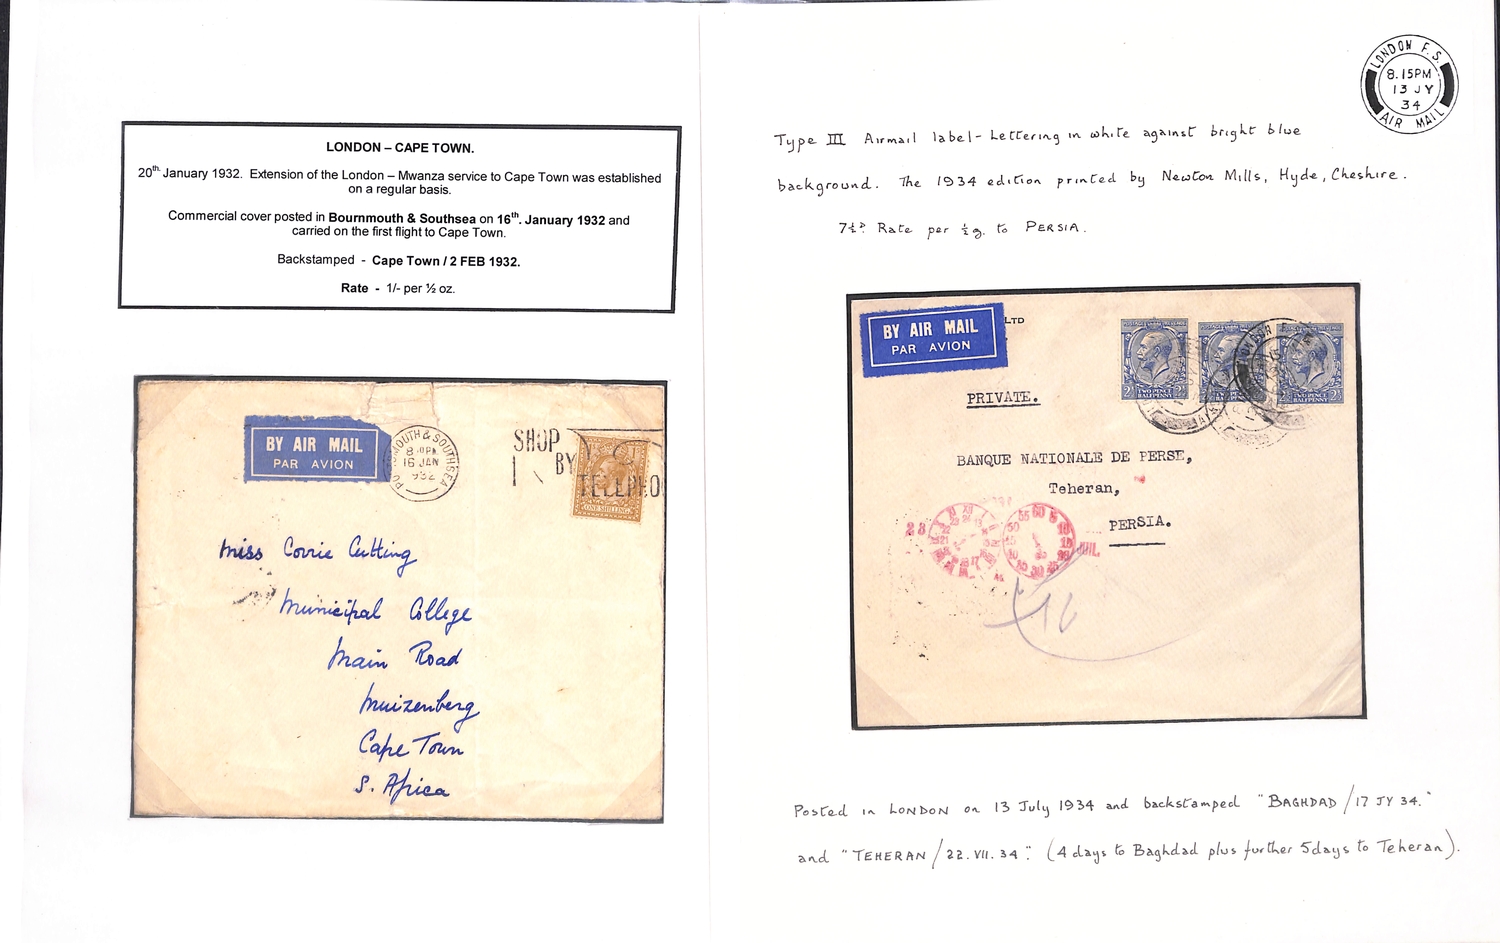 LONDON – CAPE TOWN.
20th. January 1932. Extension of the London – Mwanza service to Cape Town was established
on a regular basis.
Commercial cover posted in Bournmouth & Southsea on 16th. January 1932 and
carried on the first flight to Cape Town.
Backstamped - Cape Town / 2 FEB 1932.
Rate - 1/- per ½ oz.
BY AIR MAIL
PAR AVION
MOUTH & SOUTHSEA
16 JAN
SHOP
BY
ONE SHILLING
Miss Corrie Cutting
Municipal College
Main Road
Muizenberg
Cape Town
S. Africa
LONDON F.S.
8.15PM
13 JY
34
AIR MAIL
Type III Airmail label - Lettering in white against bright blue
background. The 1934 edition printed by Newton Mills, Hyde, Cheshire.
7½D. Rate per ½ g. to PERSIA.
BY AIR MAIL
PAR AVION
LTD
POSTAGE REVENUE
2½ TWO PENCE HALFPENNY 2½
PRIVATE.
BANQUE NATIONALE DE PERSE,
Teheran,
PERSIA.
23
JUIL.
16
Posted in LONDON on 13 July 1934 and backstamped "BAGHDAD / 17 JY 34."
and "TEHERAN / 22.VII.34". (4 days to Baghdad plus further 5 days to Teheran).